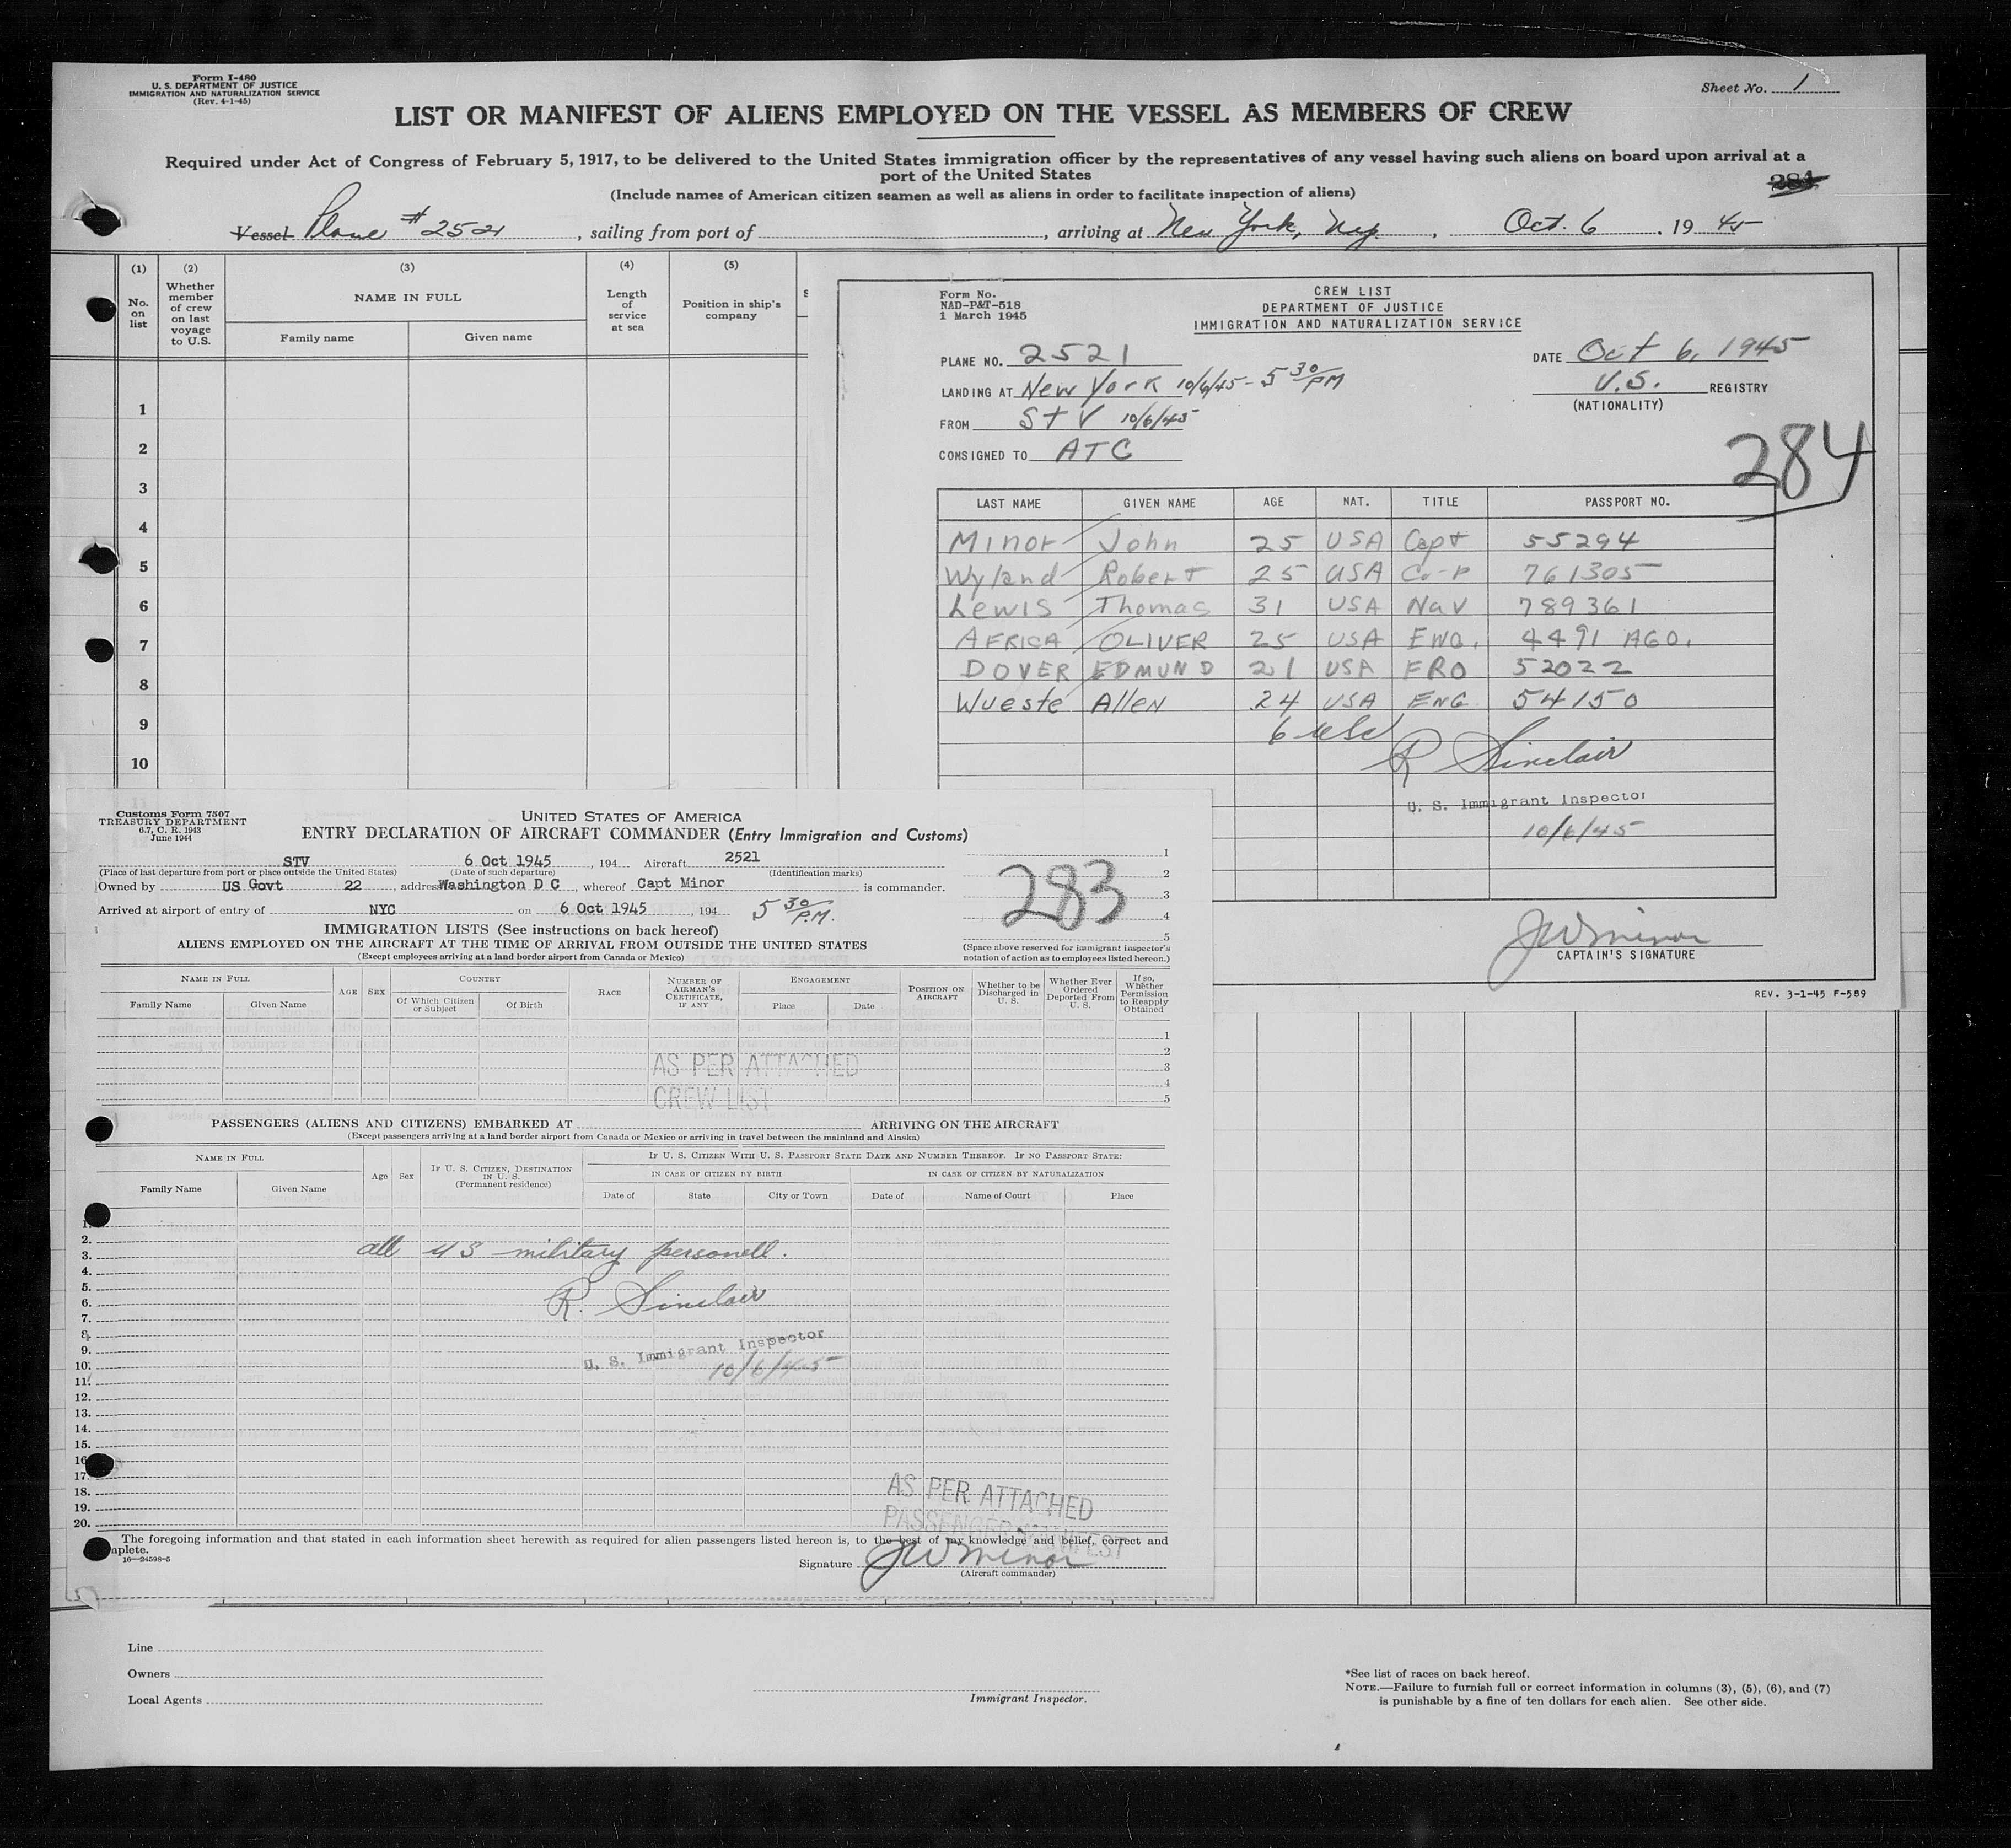 Form I-480
U. S. DEPARTMENT OF JUSTICE
IMMIGRATION AND NATURALIZATION SERVICE
(Rev. 4-1-45)
Sheet No. 1
LIST OR MANIFEST OF ALIENS EMPLOYED ON THE VESSEL AS MEMBERS OF CREW
Required under Act of Congress of February 5, 1917, to be delivered to the United States immigration officer by the representatives of any vessel having such aliens on board upon arrival at a
port of the United States
(Include names of American citizen seamen as well as aliens in order to facilitate inspection of aliens)
284
Vessel Plane # 2521, sailing from port of , arriving at New York, N.Y. , Oct. 6 , 19 45
(1) (2) (3) (4) (5)
No. on list
Whether member of crew on last voyage to U.S.
NAME IN FULL
Family name Given name
Length of service at sea
Position in ship's company
1
2
3
4
5
6
7
8
9
10
Form No.
NAD-P&T-518
1 March 1945
CREW LIST
DEPARTMENT OF JUSTICE
IMMIGRATION AND NATURALIZATION SERVICE
PLANE NO. 2521
DATE Oct 6, 1945
LANDING AT New York 10/6/45 - 5 30/PM
U.S. REGISTRY
(NATIONALITY)
FROM St V 10/6/45
CONSIGNED TO ATC
284
LAST NAME GIVEN NAME AGE NAT. TITLE PASSPORT NO.
Minor John 25 USA Capt 55294
Wyland Robert 25 USA Co-P 761305
Lewis Thomas 31 USA Nav 789361
AFRICA OLIVER 25 USA ENG. 4491 AGO.
DOVER EDMUND 21 USA FRO 52022
Wueste Allen 24 USA ENG 54150
6 USC
R Sinclair
U. S. Immigrant Inspector
10/6/45
JW Minor
CAPTAIN'S SIGNATURE
REV. 3-1-45 F-589
Customs Form 7507
TREASURY DEPARTMENT
6.7, C. R. 1943
June 1944
UNITED STATES OF AMERICA
ENTRY DECLARATION OF AIRCRAFT COMMANDER (Entry Immigration and Customs)
STV 6 Oct 1945 , 194 Aircraft 2521
(Place of last departure from port or place outside the United States) (Date of such departure) (Identification marks)
Owned by US Govt 22 , address Washington D C , whereof Capt Minor is commander.
Arrived at airport of entry of NYC on 6 Oct 1945 , 194 5 30/P.M.
1
2
3
4
5
283
(Space above reserved for immigrant inspector's
notation of action as to employees listed hereon.)
IMMIGRATION LISTS (See instructions on back hereof)
ALIENS EMPLOYED ON THE AIRCRAFT AT THE TIME OF ARRIVAL FROM OUTSIDE THE UNITED STATES
(Except employees arriving at a land border airport from Canada or Mexico)
NAME IN FULL
Family Name Given Name
AGE SEX
COUNTRY
Of Which Citizen or Subject Of Birth
RACE
NUMBER OF AIRMAN'S CERTIFICATE, IF ANY
ENGAGEMENT
Place Date
POSITION ON AIRCRAFT
Whether to be Discharged in U. S.
Whether Ever Ordered Deported From U. S.
If so, Whether Permission to Reapply Obtained
1
2
3
4
5
AS PER ATTACHED
CREW LIST
PASSENGERS (ALIENS AND CITIZENS) EMBARKED AT ARRIVING ON THE AIRCRAFT
(Except passengers arriving at a land border airport from Canada or Mexico or arriving in travel between the mainland and Alaska)
NAME IN FULL
Family Name Given Name
Age Sex
IF U. S. CITIZEN, DESTINATION IN U. S.
(Permanent residence)
IF U. S. CITIZEN WITH U. S. PASSPORT STATE DATE AND NUMBER THEREOF. IF NO PASSPORT STATE:
IN CASE OF CITIZEN BY BIRTH IN CASE OF CITIZEN BY NATURALIZATION
Date of State City or Town Date of Name of Court Place
1.
2.
3.
4.
5.
6.
7.
8.
9.
10.
11.
12.
13.
14.
15.
16
17.
18.
19.
20.
all US military personell.
R. Sinclair
U. S. Immigrant Inspector
10/6/45
AS PER ATTACHED
PASSENGER MANIFEST
The foregoing information and that stated in each information sheet herewith as required for alien passengers listed hereon is, to the best of my knowledge and belief, correct and
mplete.
16—24598-5
Signature JW Minor
(Aircraft commander)
Line
Owners
Local Agents
Immigrant Inspector.
*See list of races on back hereof.
NOTE.—Failure to furnish full or correct information in columns (3), (5), (6), and (7)
is punishable by a fine of ten dollars for each alien. See other side.